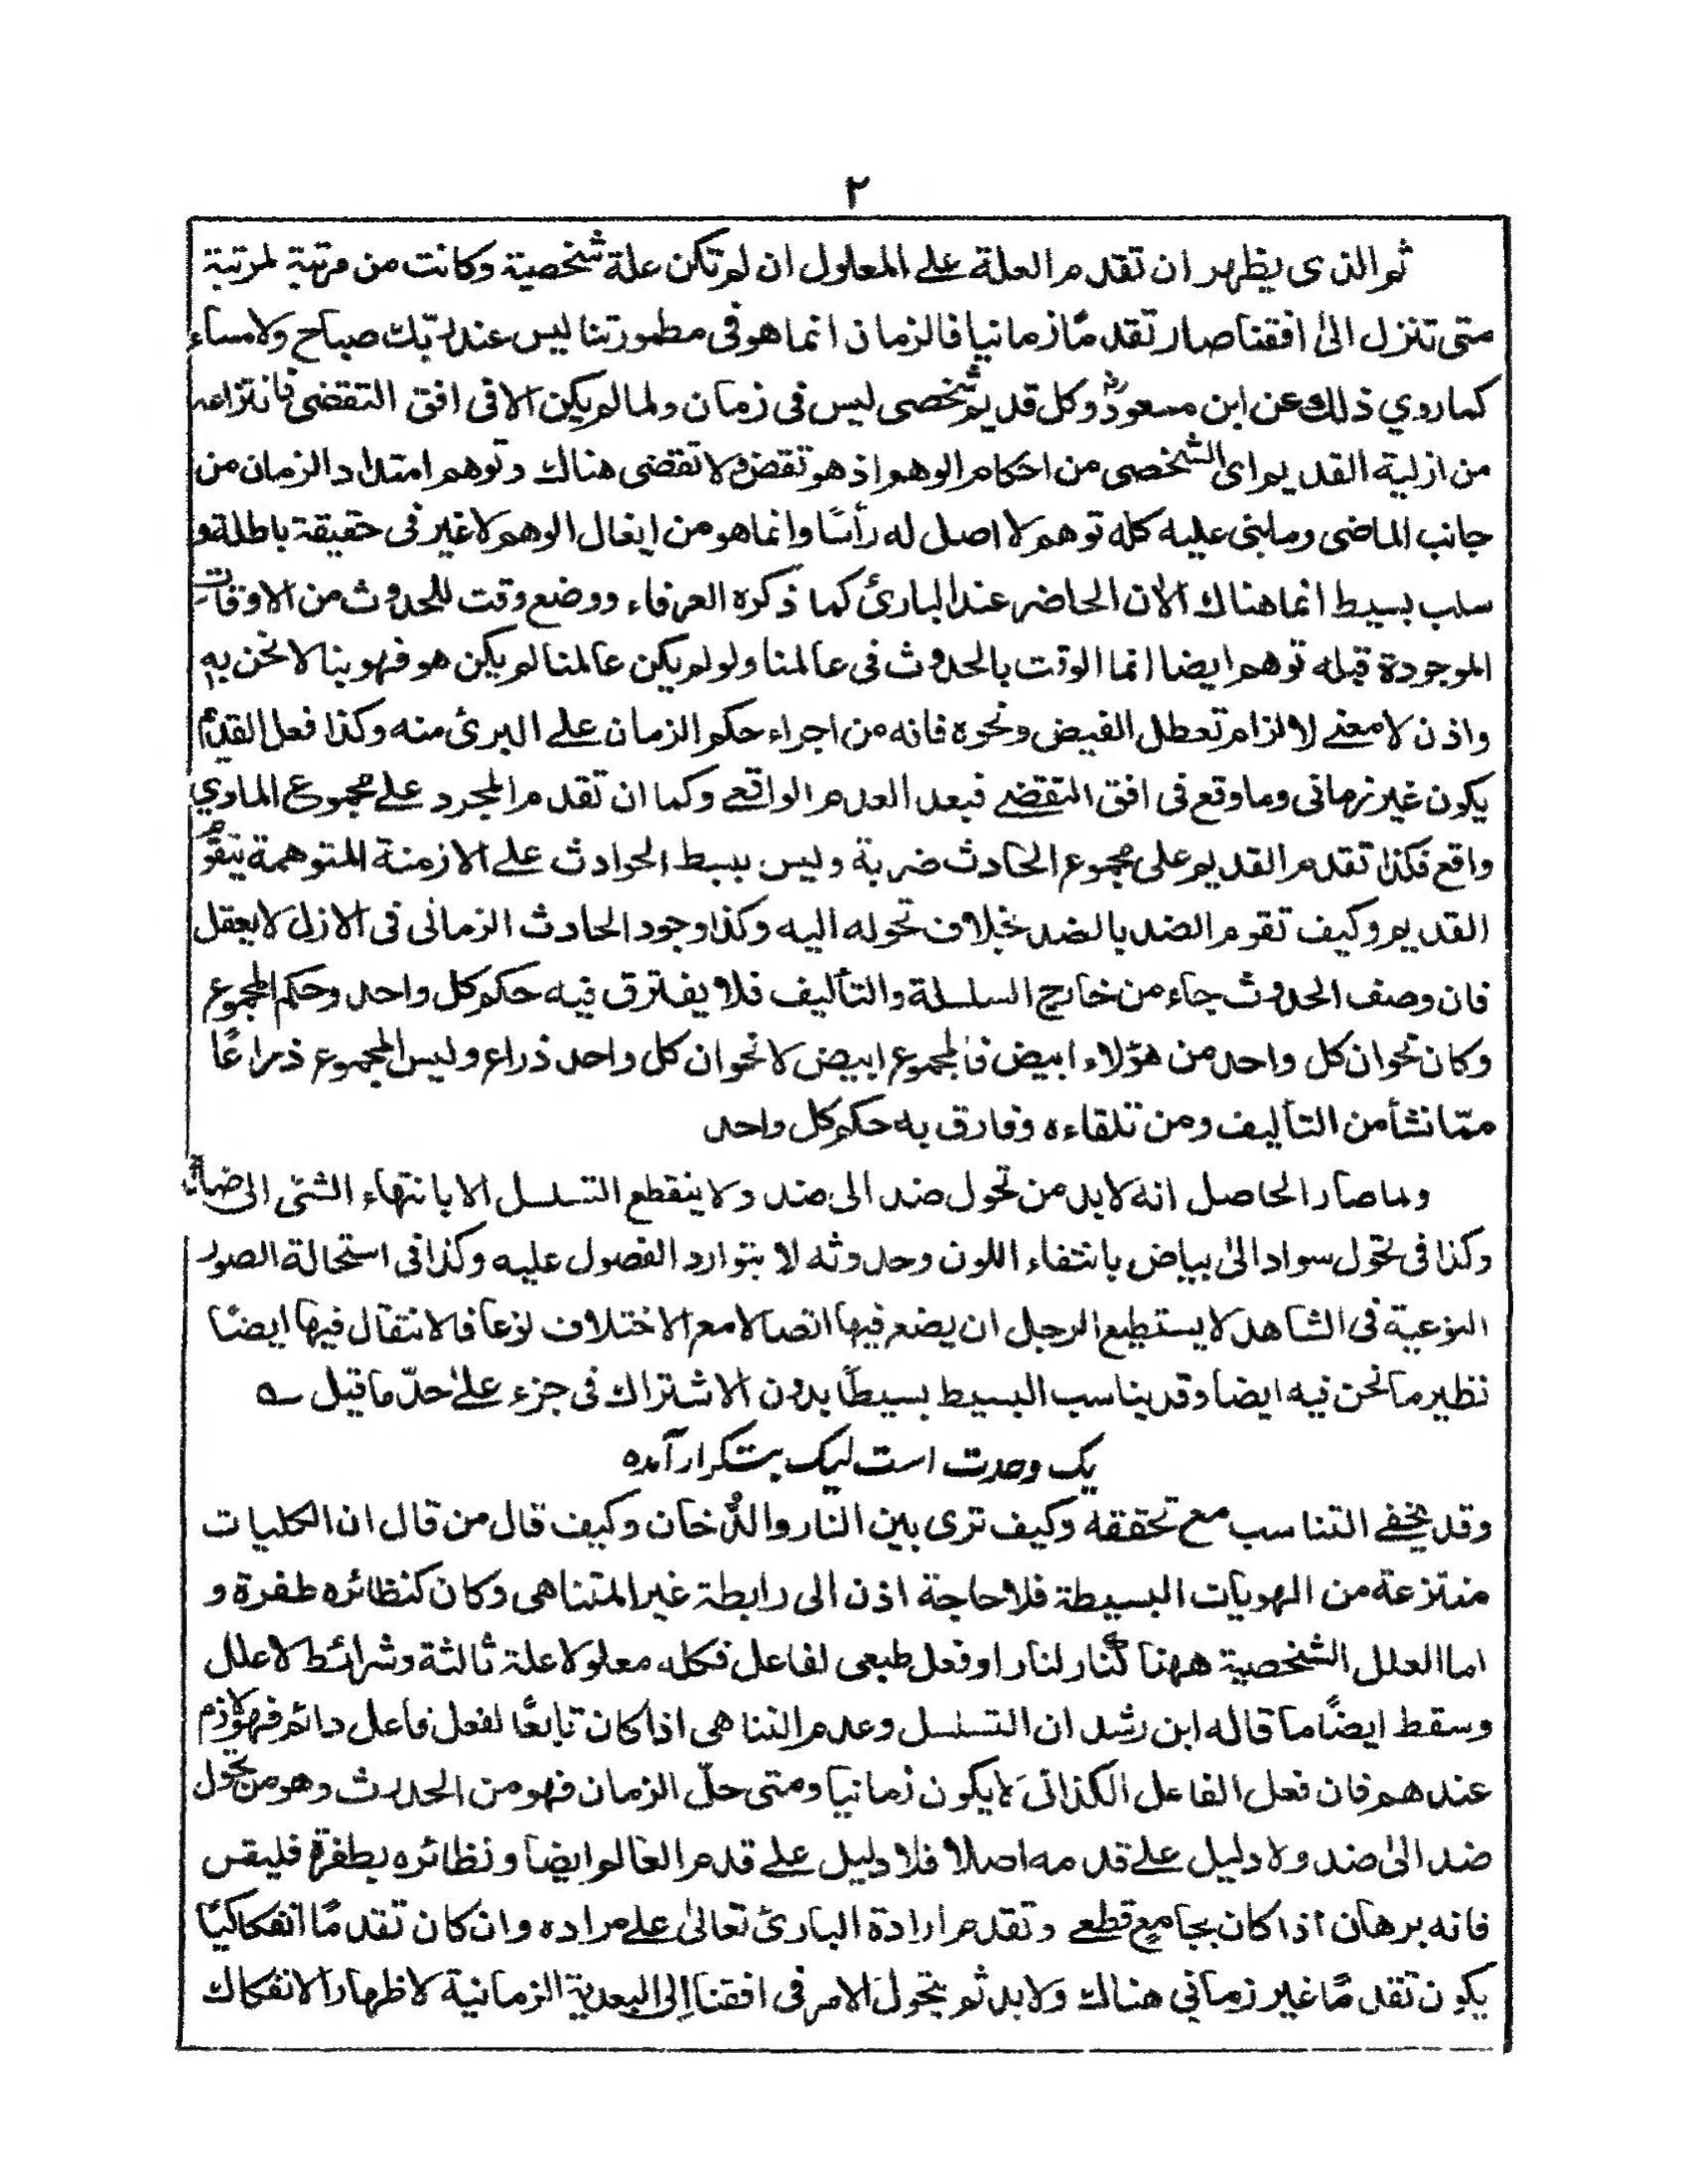 ٢
ثم الذى يظهر ان تقدم العلة على المعلول ان لم تكن علة شخصية وكانت من مرتبة لمرتبة
متى تنزل الىٰ افقنا صار تقدمًا زمانيا فالزمان انما هو فى مطمورتنا ليس عند ربك صباح ولا مساء
كما روي ذلك عن ابن مسعودؓ وكل قديم شخصى ليس فى زمان ولما لم يكن الا فى افق التقضى فانتزاعه
من ازلية القديم اى الشخصى من احكام الوهم اذ هو تقض ولا تقضى هناك وتوهم امتداد الزمان من
جانب الماضى وما بنى عليه كله توهم لا اصل له رأسًا وانما هو من ايغال الوهم لا غير فى حقيقة باطلة و
سلب بسيط انما هناك الآن الحاضر عند البارئ كما ذكره العرفاء ووضع وقت للحدوث من الاوقات
الموجودة قبله توهم ايضا انما الوقت بالحدوث فى عالمنا ولو لم يكن عالمنا لم يكن هو فهو بنا لا نحن به
واذن لا معنى لالزام تعطل الفيض ونحوه فانه من اجراء حكم الزمان على البرئ منه وكذا فعل القديم
يكون غير زمانى وما وقع فى افق التقضى فبعد العدم الواقعى وكما ان تقدم المجرد على مجموع المادي
واقع فكذا تقدم القديم على مجموع الحادث ضربة وليس ببسط الحوادث على الازمنة المتوهمة يتقوم
القديم وكيف تقوم الضد بالضد بخلاف تحوله اليه وكذا وجود الحادث الزمانى فى الازل لا يعقل
فان وصف الحدوث جاء من خارج السلسلة والتأليف فلا يفترق فيه حكم كل واحد وحكم المجموع
وكان نحو ان كل واحد من هؤلاء ابيض فالمجموع ابيض لا نحو ان كل واحد ذراع وليس المجموع ذراعًا
ممّا نشأ من التأليف ومن تلقاءه وفارق به حكم كل واحد
ولما صار الحاصل انه لا بد من تحول ضد الى ضد ولا ينقطع التسلسل الا بانتهاء الشئ الى
وكذا فى تحول سواد الىٰ بياض بانتفاء اللون وحدوثه لا بتوارد الفصول عليه وكذا فى استحالة الصور
النوعية فى الشاهد لا يستطيع الرجل ان يضع فيها اتصالا مع الاختلاف نوعا فالانتقال فيها ايضًا
نظير ما نحن فيه ايضا وقد يناسب البسيط بسيطًا بدون الاشتراك فى جزء علىٰ حدّ ما قيل ؎
يک وحدت است ليک بتكرار آمده
وقد يخفى التناسب مع تحققه وكيف ترى بين النار والدُّخان وكيف قال من قال ان الكليات
منتزعة من الهويات البسيطة فلا حاجة اذن الى رابطة غير المتناهى وكان كنظائره طفرة و
اما العلل الشخصية ههنا كنار لنار او فعل طبعى لفاعل فكله معلولا علة ثالثة وشرائط لا علل
وسقط ايضًا ما قاله ابن رشد ان التسلسل وعدم التناهى اذا كان تابعًا لفعل فاعل دائم فهو لازم
عندهم فان فعل الفاعل الكذائى لا يكون زمانيا ومتى حلّ الزمان فهو من الحدوث وهو من تحول
ضد الىٰ ضد ولا دليل على قدمه اصلا فلا دليل على قدم العالم ايضا ونظائره بطفرة فليقس
فانه برهان اذا كان بجامع قطعى وتقدم ارادة البارئ تعالىٰ على مراده وان كان تقدمًا انفكاكيًا
يكون تقدمًا غير زماني هناك ولا بد ثم بتحول الامر فى افقنا إلى البعدية الزمانية لاظهار الانفكاك